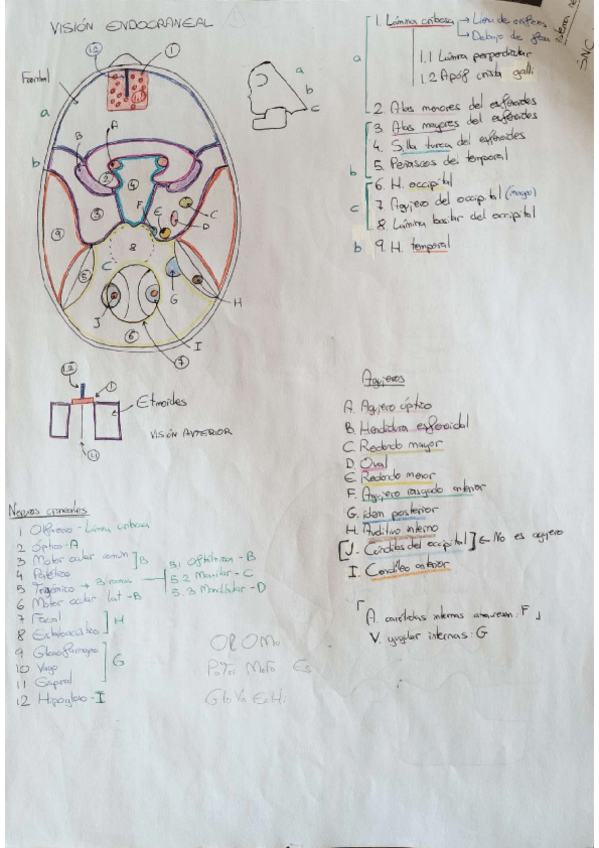 VISIÓN ENDOCRANEAL
1.2
1
Frontal
a
b
B
A
2
4
3
F
E
C
D
9
8
5
C
G
H
J
I
6
7
a
b
c
1. Lámina cribosa → Línea de
→ Debajo de
1.1 Lámina perpendicular
1.2 Apóf crista galli
2. Alas menores del esfenoides
3 Alas mayores del esfenoides
4. Silla turca del esfenoides
5. Peñascos del temporal
6. H. occipital
7 Agujero del occipital (magno)
8. Lámina basilar del occipital
9. H. temporal
a
b
c
b
SNC
1.2
1
Etmoides
VISIÓN ANTERIOR
1.1
Agujeros
A. Agujero óptico
B. Hendidura esfenoidal
C. Redondo mayor
D. Oval
E. Redondo menor
F. Agujero rasgado anterior
G. idem posterior
H. Auditivo interno
[J. Cóndilos del occipital] ← No es agujero
I. Condíleo anterior
A. carótidas internas atraviesan: F
V. yugular internas: G
Nervios craneales
1 Olfatorio - Lámina cribosa
2 Óptico - A
3 Motor ocular común ] B
4 Patético
5 Trigémino → 3 ramas
5.1 Oftálmica - B
5.2 Maxilar - C
5.3 Mandibular - D
6 Motor ocular lat - B
7 Facial ] H
8 Estatoacústico
9 Glosofaríngeo
10 Vago ] G
11 Espinal
12 Hipogloso - I
OLOMo
PaTri MoFa Es
Glo Va EsHi